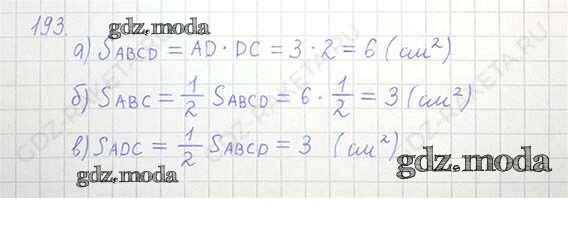 193.
gdz.moda
а) SABCD = AD · DC = 3 · 2 = 6 (см²)
б) SABC = 1/2 SABCD = 6 · 1/2 = 3 (см²)
в) SADC = 1/2 SABCD = 3 (см²)
gdz.moda
gdz.moda
GDZ-RAKETA.RU